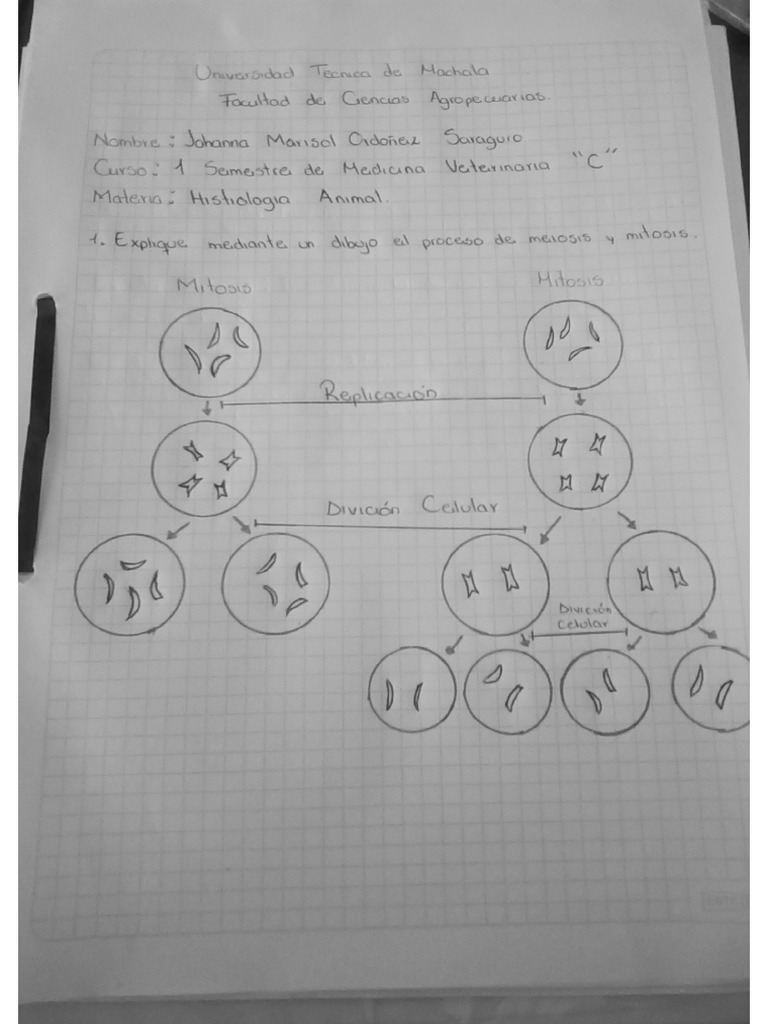 Universidad Tecnica de Machala
Facultad de Ciencias Agropecuarias.
Nombre: Johanna Marisol Ordoñez Saraguro
Curso: 1 Semestre de Medicina Veterinaria "C"
Materia: Histiologia Animal.
1. Explique mediante un dibujo el proceso de meiosis y mitosis.
Mitosis
Mitosis
Replicación
División Celular
División
Celular